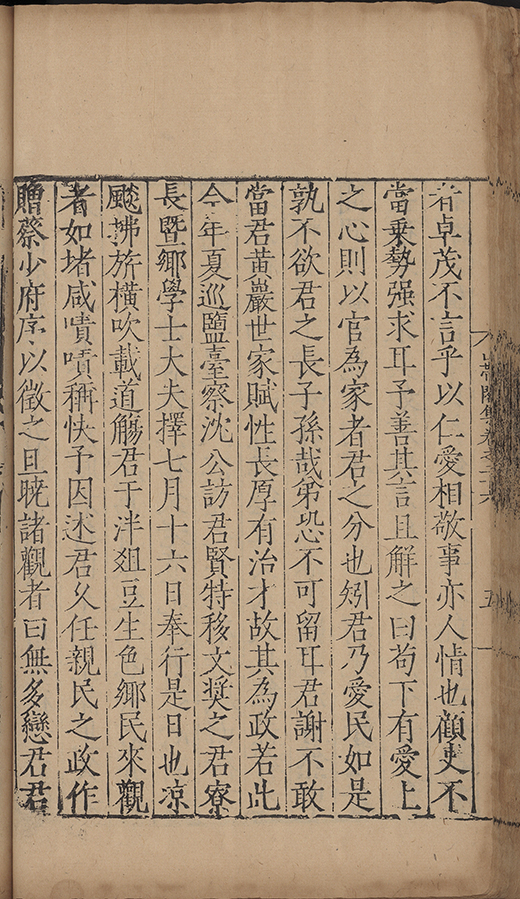 者卓茂不言乎以仁愛相敬事亦人情也顧吏不
當乗勢强求耳予善其言且解之曰苟下有愛上
之心則以官為家者君之分也矧君乃愛民如是
孰不欲君之長子孫哉第恐不可留耳君謝不敢
當君黃巖世家賦性長厚有治才故其為政若此
今年夏巡鹽臺察沈公訪君賢特移文奨之君寮
長暨鄉學士大夫擇七月十六日奉行是日也凉
飈拂旂橫吹載道觴君于泮爼豆生色鄉民來觀
者如堵咸嘖嘖稱快予因述君久任親民之政作
贈蔡少府序以徵之且曉諸觀者曰無多戀君君